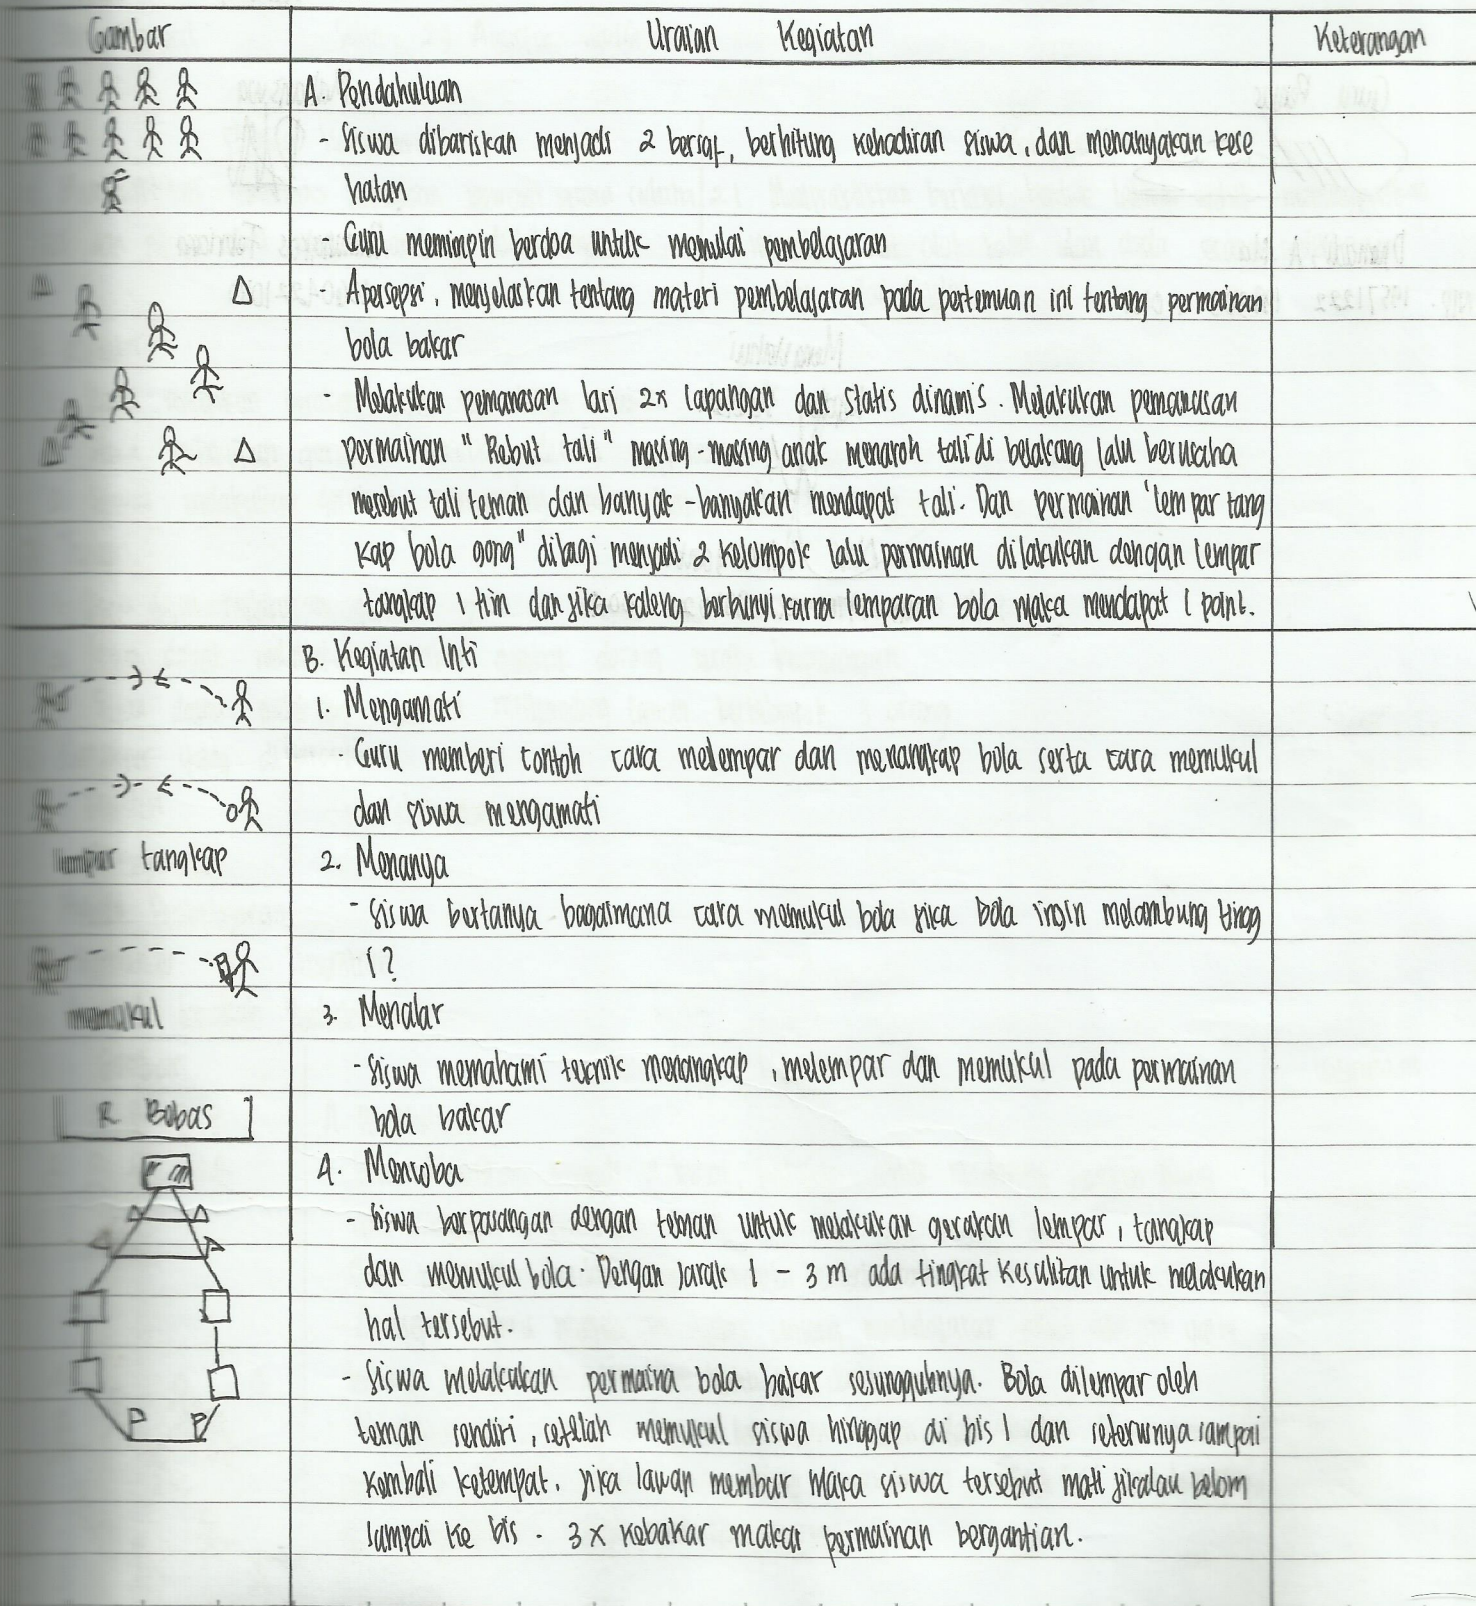 Gambar
Uraian Kegiatan
Keterangan
A. Pendahuluan
- Siswa dibariskan menjadi 2 bersaf, berhitung kehadiran siswa, dan menanyakan kese
hatan
Guru memimpin berdoa untuk memulai pembelajaran
Apersepsi, menjelaskan tentang materi pembelajaran pada pertemuan ini tentang permainan
bola bakar
- Melakukan pemanasan lari 2x lapangan dan statis dinamis. Melakukan pemanasan
permainan "Rebut tali" masing-masing anak menaroh tali di belakang lalu berusaha
merebut tali teman dan banyak-banyakan mendapat tali. Dan permainan "lempar tang
kap bola gong" dibagi menjadi 2 kelompok lalu permainan dilakukan dengan lempar
tangkap 1 tim dan jika kaleng berbunyi karna lemparan bola maka mendapat 1 point.
B. Kegiatan Inti
1. Mengamati
- Guru memberi contoh cara melempar dan menangkap bola serta cara memukul
dan siswa mengamati
lempar tangkap
2. Menanya
- Siswa bertanya bagaimana cara memukul bola jika bola ingin melambung tingg
i?
memukul
3. Menalar
- Siswa memahami teknik menangkap, melempar dan memukul pada permainan
bola bakar
R Bebas
4. Mencoba
- Siswa berpasangan dengan teman untuk melakukan gerakan lempar, tangkap
dan memukul bola. Dengan jarak 1 - 3 m ada tingkat kesulitan untuk melakukan
hal tersebut.
- Siswa melakukan permaina bola bakar sesungguhnya. Bola dilempar oleh
teman sendiri, setelah memukul siswa hinggap di bis 1 dan seterusnya sampai
kembali ketempat. jika lawan membar maka siswa tersebut mati jikalau belom
sampai ke bis - 3x kebakar makar permainan bergantian.
P P